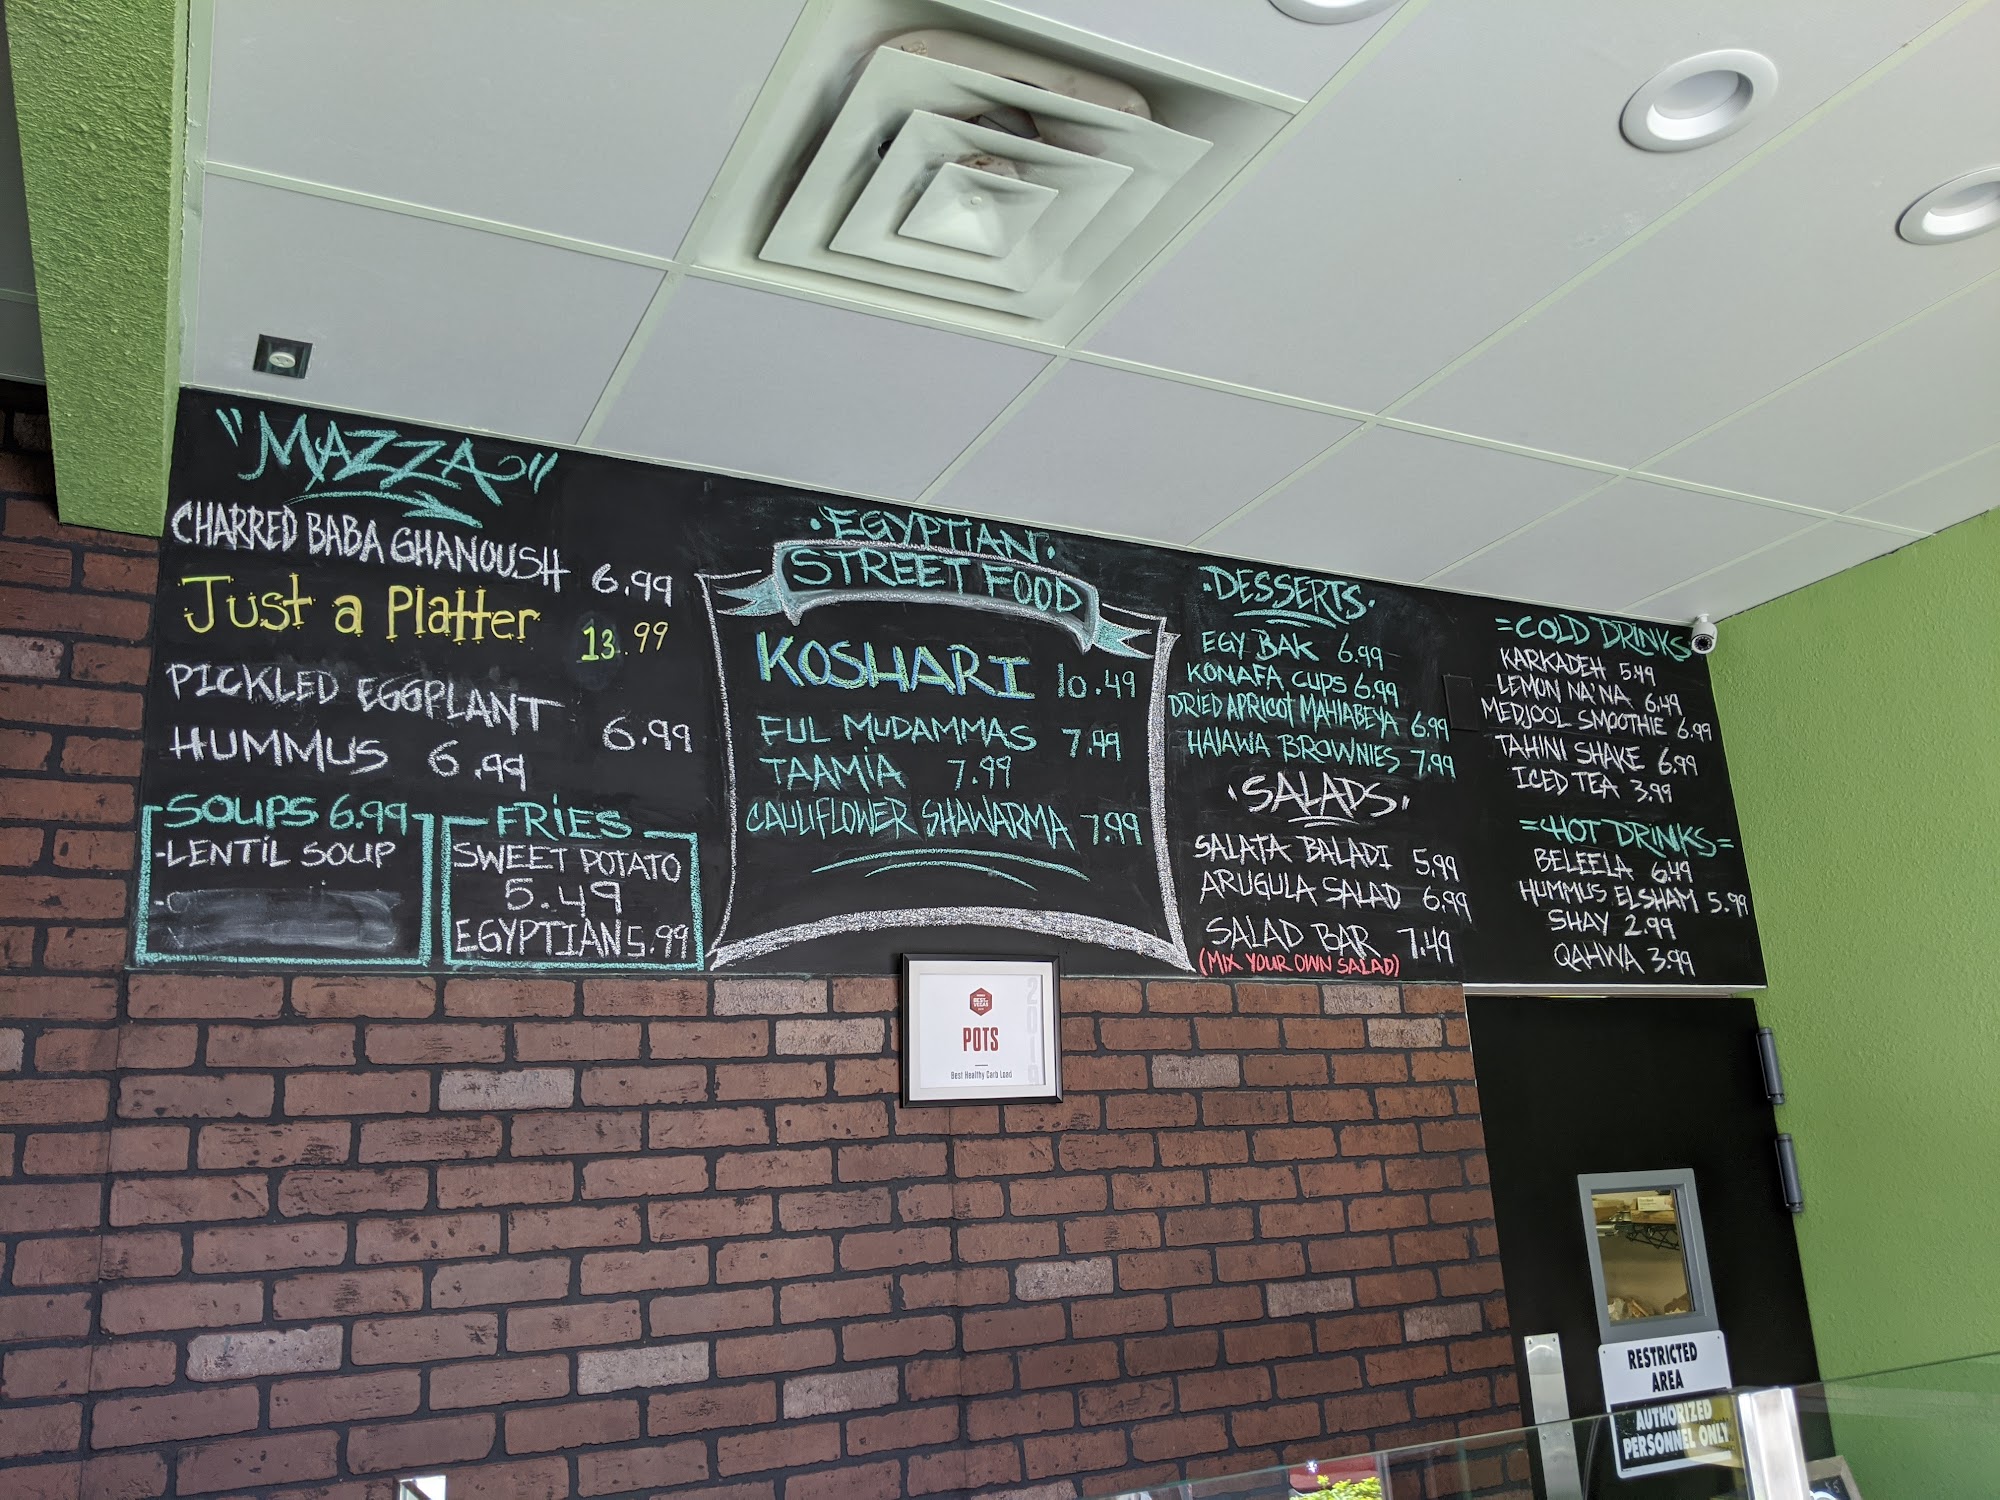 "MAZZA"
CHARRED BABA GHANOUSH 6.99
Just a Platter 13.99
PICKLED EGGPLANT 6.99
HUMMUS 6.99
SOUPS 6.99
-LENTIL SOUP
-
FRIES
SWEET POTATO
5.49
EGYPTIAN 5.99
·EGYPTIAN·
STREET FOOD
KOSHARI 10.49
FUL MUDAMMAS 7.49
TAAMIA 7.99
CAULIFLOWER SHAWARMA 7.99
·DESSERTS·
EGY BAK 6.99
KONAFA CUPS 6.99
DRIED APRICOT MAHLABEYA 6.99
HALAWA BROWNIES 7.99
·SALADS·
SALATA BALADI 5.99
ARUGULA SALAD 6.99
SALAD BAR 7.49
(MIX YOUR OWN SALAD)
=COLD DRINKS
KARKADEH 5.49
LEMON NA'NA 6.49
MEDJOOL SMOOTHIE 6.99
TAHINI SHAKE 6.99
ICED TEA 3.99
=HOT DRINKS=
BELEELA 6.49
HUMMUS ELSHAM 5.99
SHAY 2.99
QAHWA 3.99
BEST OF
VEGAS
POTS
Best Healthy Carb Load
RESTRICTED
AREA
AUTHORIZED
PERSONNEL ONLY